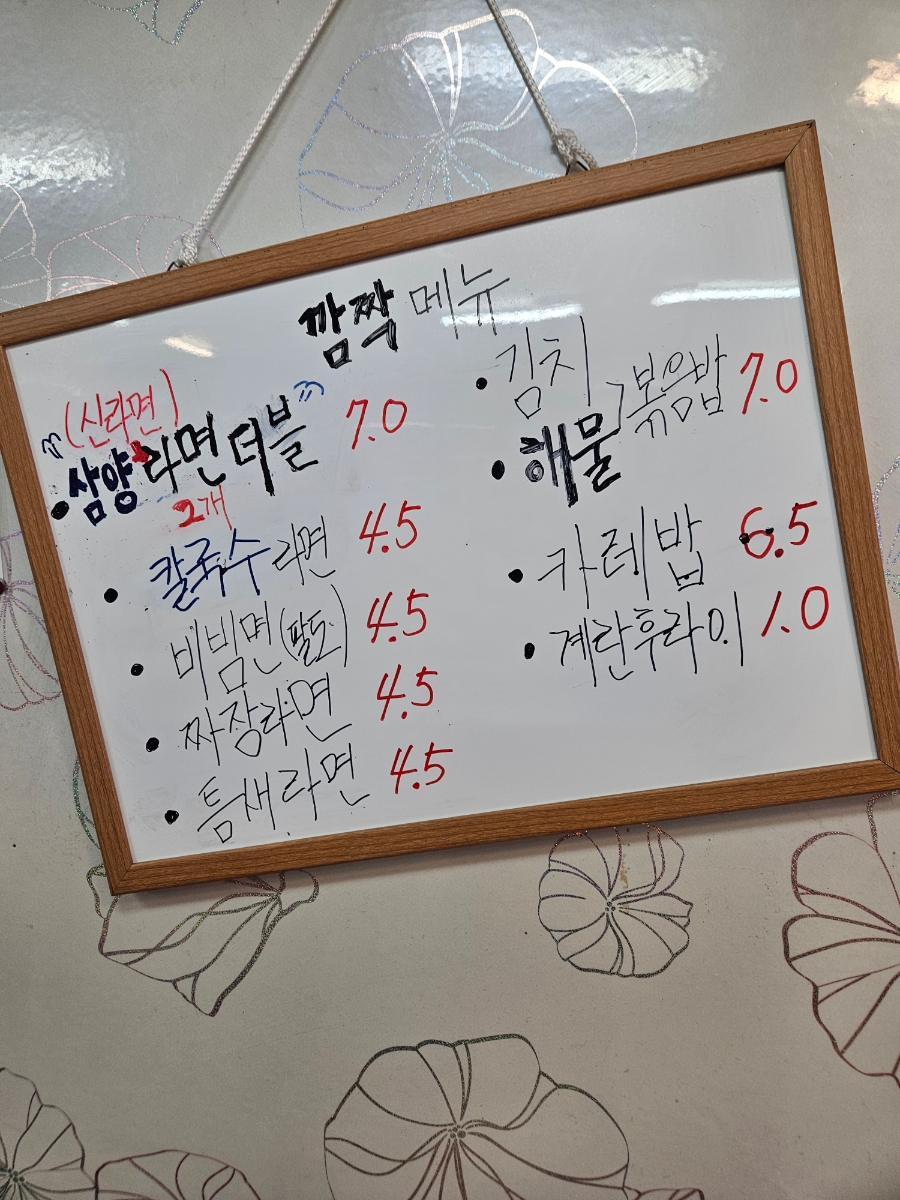 깜짝 메뉴
(신라면)
• 삼양라면 더블 7.0
2개
• 칼국수 라면 4.5
• 비빔면(팔도) 4.5
• 짜장라면 4.5
• 틈새라면 4.5
• 김치
• 해물 > 볶음밥 7.0
• 카레밥 6.5
• 계란후라이 1.0